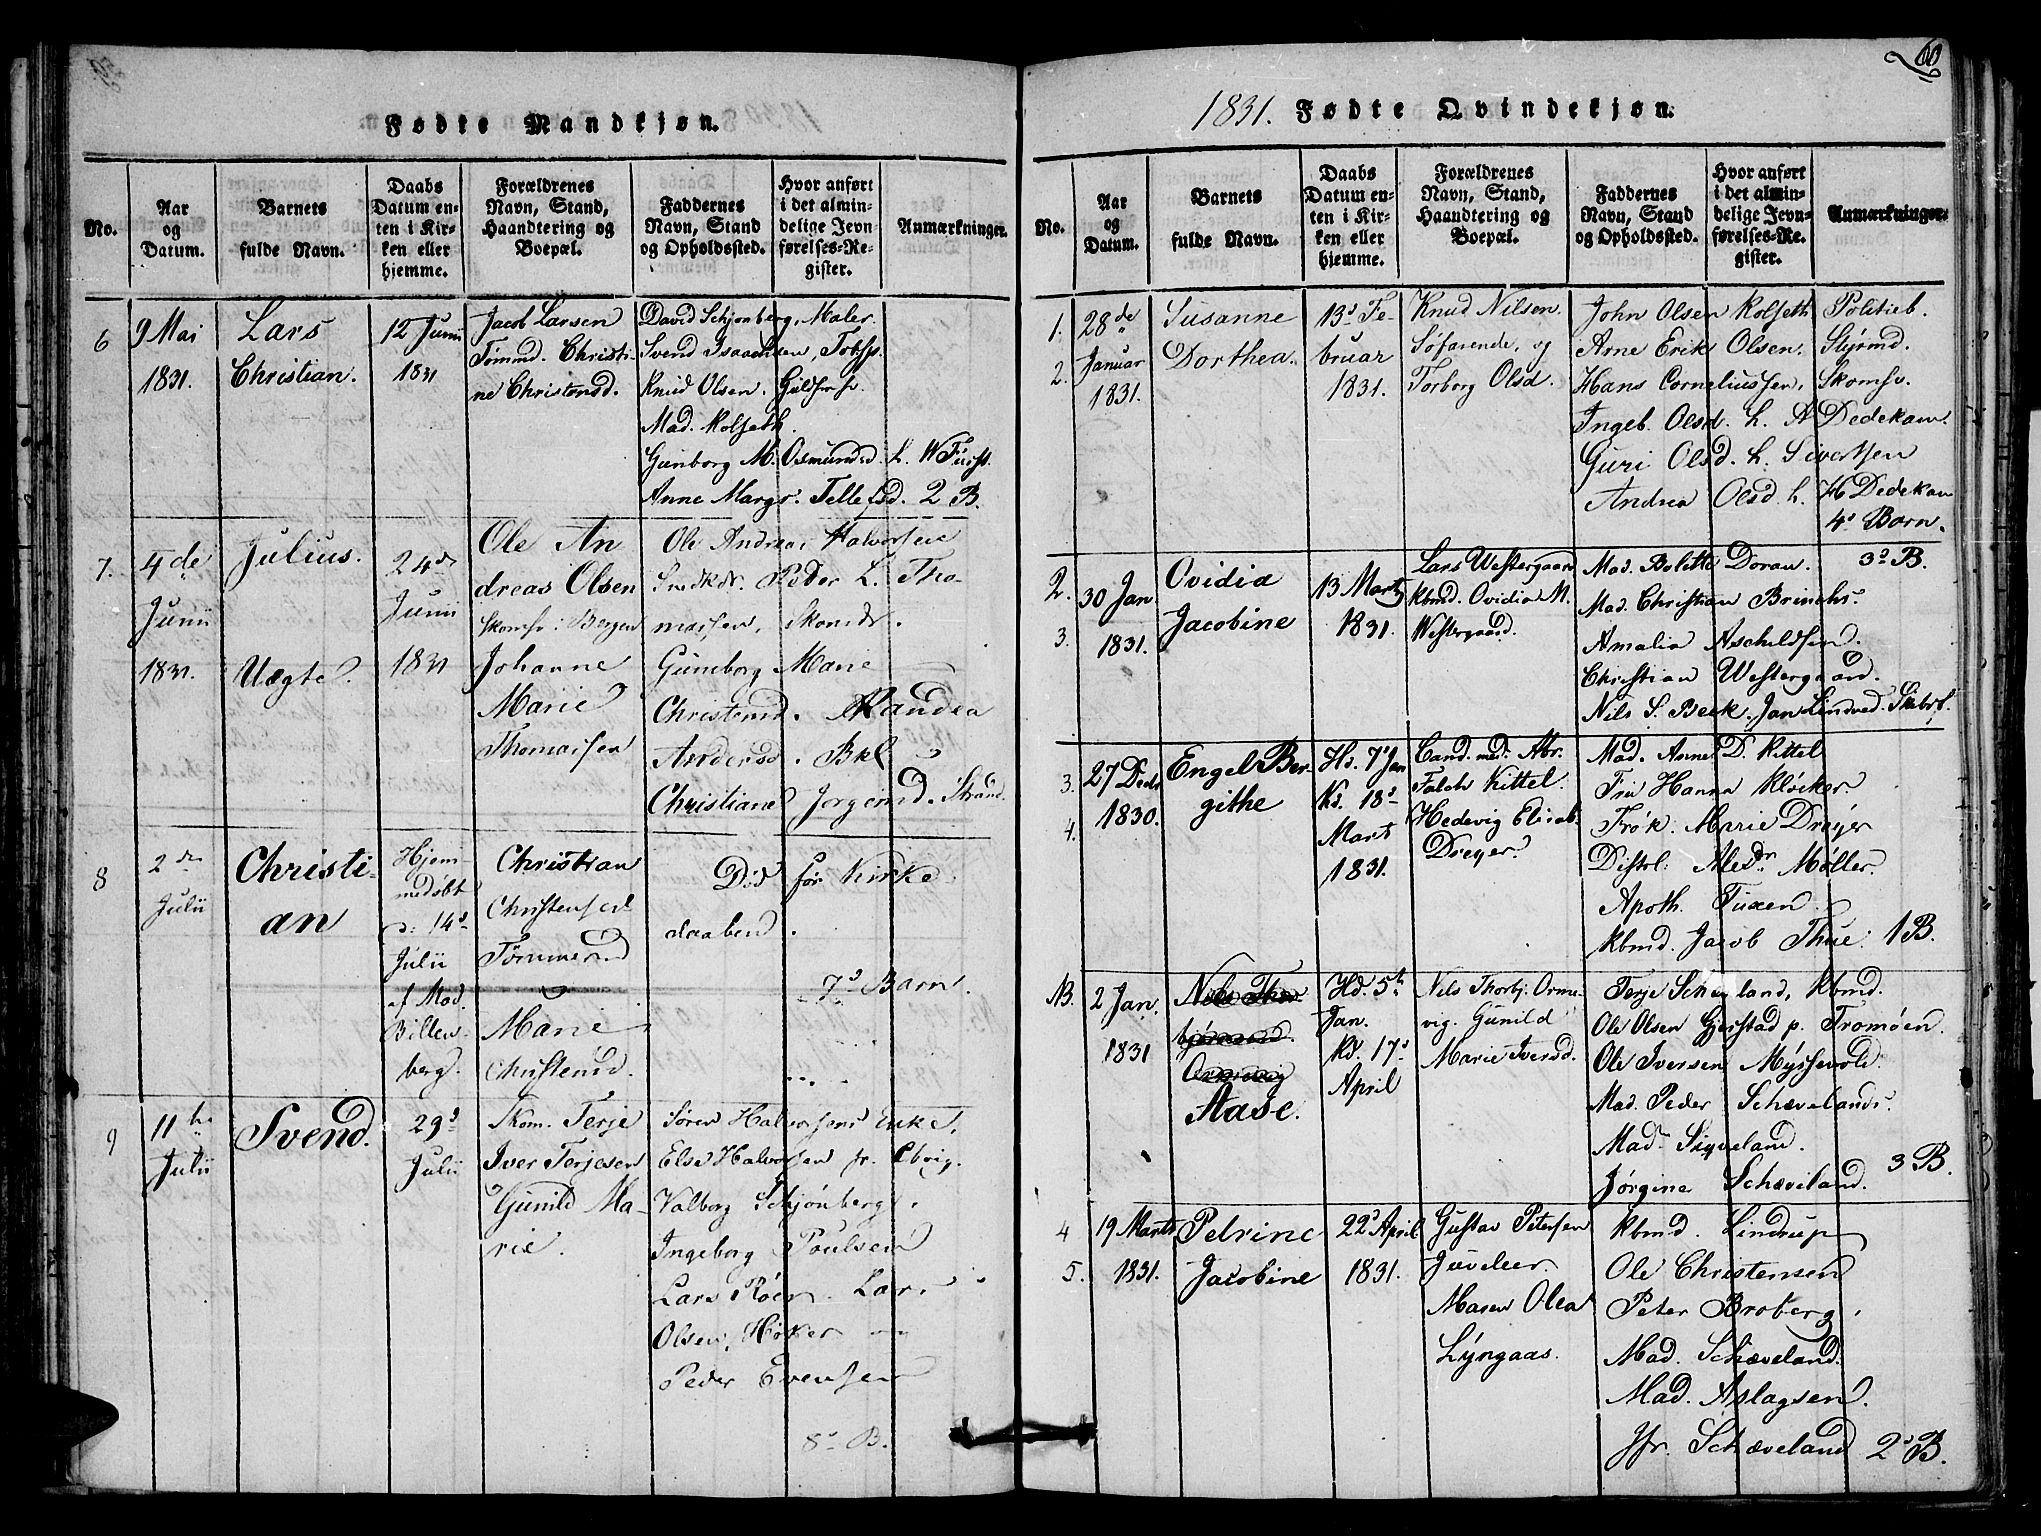 Fødte Mandkjøn.
No.
Aar
og
Datum.
Barnets
fulde Navn.
Daabs
Datum en-
ten i Kir-
ken eller
hjemme.
Forældrenes
Navn, Stand,
Haandtering og
Boepæl.
Faddernes
Navn, Stand
og Opholdssted.
Hvor anført
i det almin-
delige Jevn
førelses-Re-
gister.
Anmærkninger.
6
9 Mai
1831.
Lars
Christian.
12 Junii
1831
Jacob Larsen
Tømmd. Christi-
ne Christensd.
David Schjønberg, Maler.
Svend Isaachsen,
Knud Olsen.
Mad. Rolfseth.
Gunborg M. Osmundsd. h. W Fürst.
Anne Margr. Tellefsd. 2 B.
7.
4de
Junii
1831.
Julius.
Uægte.
24de
Junii
1831
Ole An
dreas Olsen
Skomr i Bergen
Johanne
Marie
Thomassen
Ole Andreas Halvorsen
Snedkdr. Peder L. Tho-
massen, Skomdr.
Gunborg Marie
Christensd. Randea
Andersd. Bkl
Christiane Jørgensd. Strand.
8
2de
Julii
Christi-
an
Hjem-
medøbt
d: 14d
Julii
af Mad.
Billen-
berg.
Christian
Christensen
Tømmermd
Marie
Christensd.
Død før Kirke-
daaben.
7d Barn.
9
11te
Julii
Svend.
29d
Julii
Skom. Terje
Iver Terjesen
Gunild Ma-
rie.
Søren Halvorsens Enke,
Else Halvorsen
Valborg Schjønberg.
Ingeborg Poulsen
Lars Röer. Lar.
Olsen, Høker
Peder Evensen
8d B.
60
1831. Fødte Qvindekjøn.
No.
Aar
og
Datum.
Barnets
fulde Navn.
Daabs
Datum en-
ten i Kir-
ken eller
hjemme.
Forældrenes
Navn, Stand,
Haandtering og
Boepæl.
Faddernes
Navn, Stand
og Opholdssted.
Hvor anført
i det almin-
delige Jevn-
førelses-Re-
gister.
Anmærkninger.
1.
2.
28de
Januar
1831.
Susanne
Dorthea.
13d Fe-
bruar
1831.
Knud Nilsen
Søfarende, og
Torborg Olsd.
John Olsen Rolfseth Politieb.
Arne Erik Olsen. Styrmd.
Hans Corneliussen, Skomr.
Ingeb. Olsd. h. A Dedekam.
Guri Olsd. h. Sivertsen
Andrea Olsd h. H Dedekam
4d Barn.
2.
3.
30 Jan.
1831.
Ovidia
Jacobine
13 Marts
1831.
Lars Westergaard
Kbmd. Ovidia M.
Westergaard.
Mad. Bolette Doran. 3d B.
Mad. Christian Brinchs.
Amalia Aschildsen.
Christian Westergaard.
Nils S. Beck. Jan Lindved. Skibrf.
3.
4.
27 Decbr
1830.
Engel Ber-
githe
Hd. 7d Jan
Kd. 18d
Marts
1831.
Cand. med. Abr.
Falch Kittel.
Hedevig Elisab.
Dreyer.
Mad. Anne D. Kittel
Fru Hanna Kløcker
Frøk. Marie Dreyer
Distrl: Alexdr Møller.
Apoth. Tuxen.
Kbmd. Jacob Thue. 1 B.
NB.
2 Jan.
1831
Nils Thor-
bjørnsend.
Ormevig
Aase.
Hd. 5te
Jan.
Kd. 17d
April
Nils Thorbj. Orme-
vig. Gunild
Marie Iversd.
Terje Scheveland, Kbmd.
Ole Olsen Gjerstad p. Tromøen.
Ole Iversen Myssevold.
Mad. Peder Schævelands.
Mad. Siqveland.
Jørgine Schæveland. 3 B.
4
5.
19 Marts
1831.
Petrine
Jacobine
22d April
1831.
Gustav Petersen
Juveleer.
Maren Olea
Lyngaas.
Kbmd. Lindrup
Ole Christensen
Peter Broberg.
Mad. Schæveland.
Mad. Aslagsen.
Jfr. Schæveland 2d B.